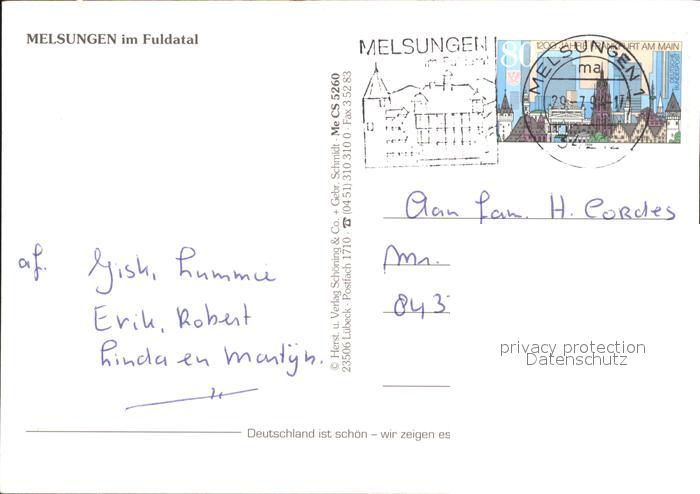 MELSUNGEN im Fuldatal
MELSUNGEN
im Fuldatal
80 1200 JAHRE FRANKFURT AM MAIN
MELSUNGEN 1
ma
© Herst. u. Verlag Schöning & Co. + Gebr. Schmidt · Me CS 5260
23506 Lübeck · Postfach 1710 · ☎ (04 51) 310 310 0 · Fax 3 52 83
Aan fam. H. Cordes
843
af.
Erik, Robert
Linda en Martijn.
privacy protection
Datenschutz
Deutschland ist schön – wir zeigen es